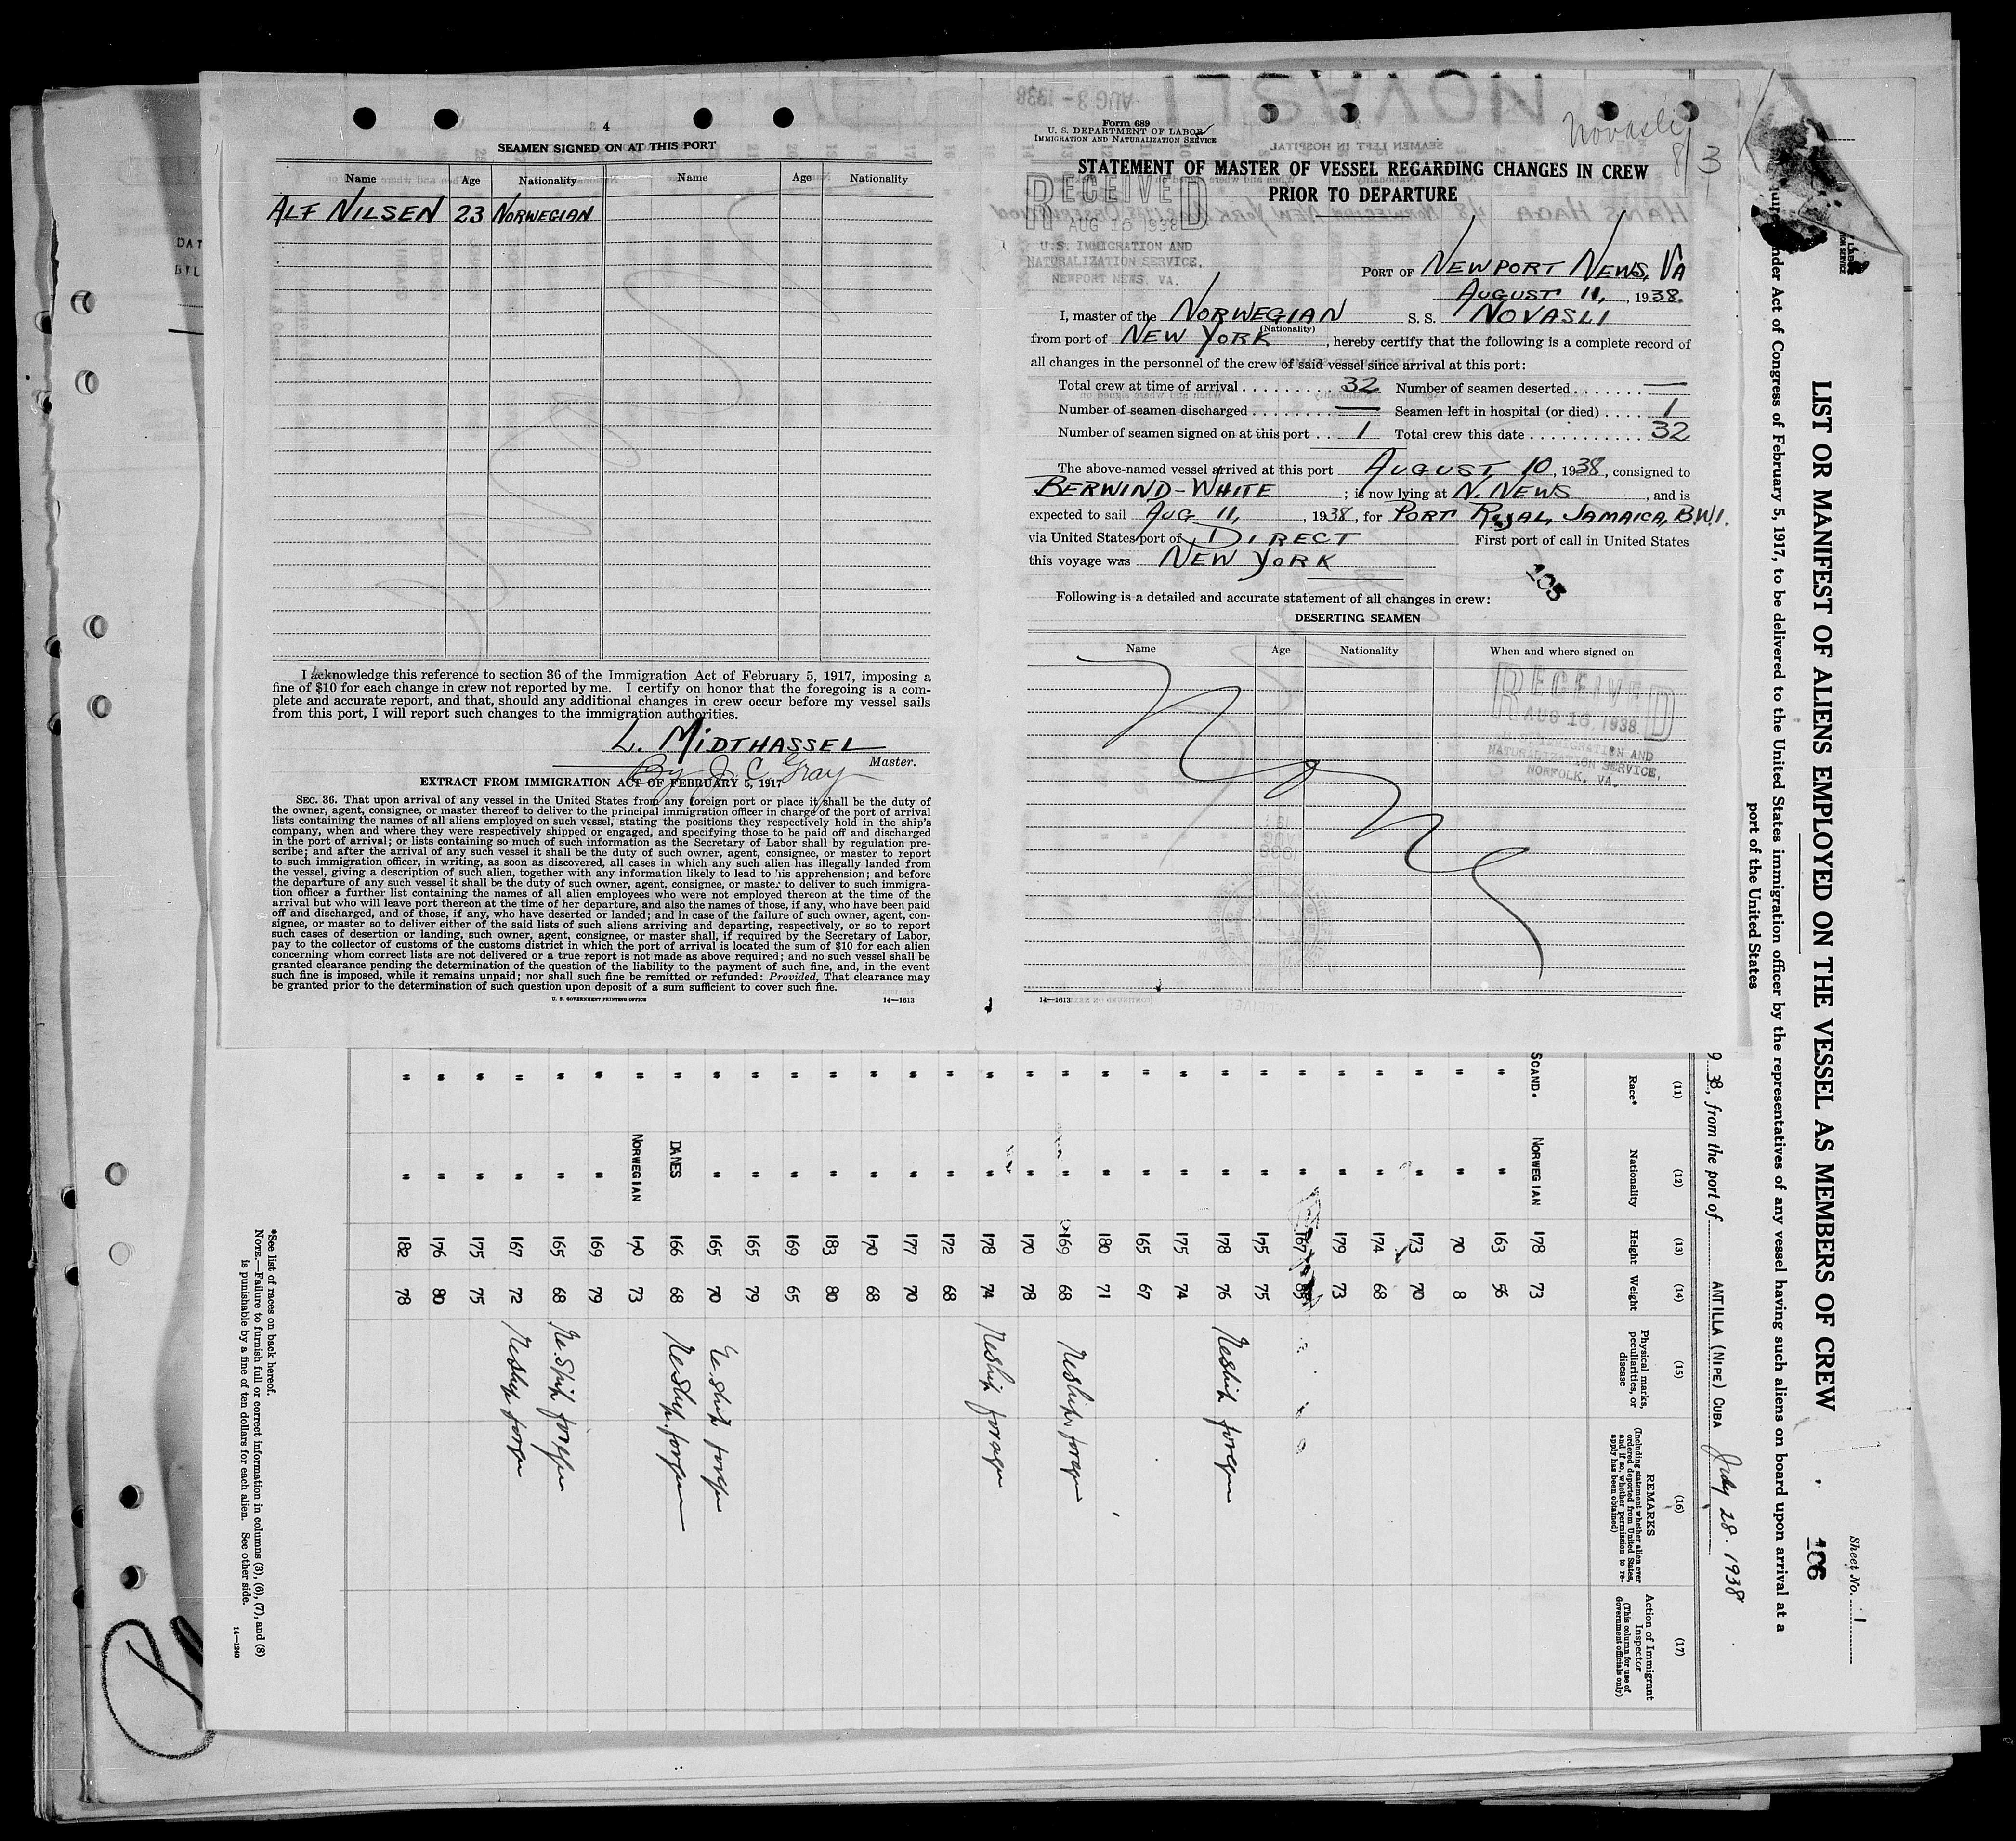 4
SEAMEN SIGNED ON AT THIS PORT
Name Age Nationality Name Age Nationality
ALF NILSEN 23 NORWEGIAN
I acknowledge this reference to section 36 of the Immigration Act of February 5, 1917, imposing a
fine of $10 for each change in crew not reported by me. I certify on honor that the foregoing is a com-
plete and accurate report, and that, should any additional changes in crew occur before my vessel sails
from this port, I will report such changes to the immigration authorities.
L. MIDTHASSEL
By J. C. Gray Master.
EXTRACT FROM IMMIGRATION ACT OF FEBRUARY 5, 1917
SEC. 36. That upon arrival of any vessel in the United States from any foreign port or place it shall be the duty of
the owner, agent, consignee, or master thereof to deliver to the principal immigration officer in charge of the port of arrival
lists containing the names of all aliens employed on such vessel, stating the positions they respectively hold in the ship's
company, when and where they were respectively shipped or engaged, and specifying those to be paid off and discharged
in the port of arrival; or lists containing so much of such information as the Secretary of Labor shall by regulation pre-
scribe; and after the arrival of any such vessel it shall be the duty of such owner, agent, consignee, or master to report
to such immigration officer, in writing, as soon as discovered, all cases in which any such alien has illegally landed from
the vessel, giving a description of such alien, together with any information likely to lead to his apprehension; and before
the departure of any such vessel it shall be the duty of such owner, agent, consignee, or master to deliver to such immigra-
tion officer a further list containing the names of all alien employees who were not employed thereon at the time of the
arrival but who will leave port thereon at the time of her departure, and also the names of those, if any, who have been paid
off and discharged, and of those, if any, who have deserted or landed; and in case of the failure of such owner, agent, con-
signee, or master so to deliver either of the said lists of such aliens arriving and departing, respectively, or so to report
such cases of desertion or landing, such owner, agent, consignee, or master shall, if required by the Secretary of Labor,
pay to the collector of customs of the customs district in which the port of arrival is located the sum of $10 for each alien
concerning whom correct lists are not delivered or a true report is not made as above required; and no such vessel shall be
granted clearance pending the determination of the question of the liability to the payment of such fine, and, in the event
such fine is imposed, while it remains unpaid; nor shall such fine be remitted or refunded: Provided, That clearance may
be granted prior to the determination of such question upon deposit of a sum sufficient to cover such fine.
U. S. GOVERNMENT PRINTING OFFICE 14—1613
Form 689
U. S. DEPARTMENT OF LABOR
IMMIGRATION AND NATURALIZATION SERVICE
Novasli
8/3
STATEMENT OF MASTER OF VESSEL REGARDING CHANGES IN CREW
PRIOR TO DEPARTURE
RECEIVED
AUG 16 1938
U.S. IMMIGRATION AND
NATURALIZATION SERVICE,
NEWPORT NEWS, VA.
PORT OF NEWPORT NEWS, VA
AUGUST 11, 1938.
I, master of the NORWEGIAN S. S. NOVASLI
(Nationality)
from port of NEW YORK, hereby certify that the following is a complete record of
all changes in the personnel of the crew of said vessel since arrival at this port:
Total crew at time of arrival 32 Number of seamen deserted —
Number of seamen discharged — Seamen left in hospital (or died) 1
Number of seamen signed on at this port 1 Total crew this date 32
The above-named vessel arrived at this port AUGUST 10, 1938, consigned to
BERWIND-WHITE; is now lying at N. NEWS, and is
expected to sail AUG 11, 1938, for PORT ROYAL, JAMAICA, B.W.I.
via United States port of DIRECT First port of call in United States
this voyage was NEW YORK
105
Following is a detailed and accurate statement of all changes in crew:
DESERTING SEAMEN
Name Age Nationality When and where signed on
None
RECEIVED
AUG 16, 1938
U.S. IMMIGRATION AND
NATURALIZATION SERVICE,
NORFOLK, VA.
14—1613
Sheet No. 1
106
LIST OR MANIFEST OF ALIENS EMPLOYED ON THE VESSEL AS MEMBERS OF CREW
under Act of Congress of February 5, 1917, to be delivered to the United States immigration officer by the representatives of any vessel having such aliens on board upon arrival at a
port of the United States
38, from the port of ANTILLA (NIPE) CUBA July 28. 1938
(11) (12) (13) (14) (15) (16) (17)
Race* Nationality Height Weight Physical marks, peculiarities, or disease REMARKS (Including statement whether alien ever ordered deported from United States, and if so, whether permission to re-apply has been obtained) Action of Immigrant Inspector (This column for use of Government officials only)
SCAND. NORWEGIAN 178 73
" " 163 56
" " 70 8
" " 173 70
" " 174 68
" " 179 73
" " 167
" " 175 75
" " 178 76 Reship foreign
" " 175 74
" " 165 67
" " 180 71
" " 169 68 Reship foreign
" " 170 78
" " 178 74 Reship foreign
" " 172 68
" " 177 70
" " 170 68
" " 183 80
" " 169 65
" " 165 79
" " 165 70 Reship foreign
" DANES 166 68 Reship foreign
" NORWEGIAN 170 73
" " 169 79
" " 165 68 Reship foreign
" " 167 72 Reship foreign
" " 175 75
" " 176 80
" " 182 78
*See list of races on back hereof.
NOTE.—Failure to furnish full or correct information in columns (3), (6), (7), and (8)
is punishable by a fine of ten dollars for each alien. See other side.
14—1240